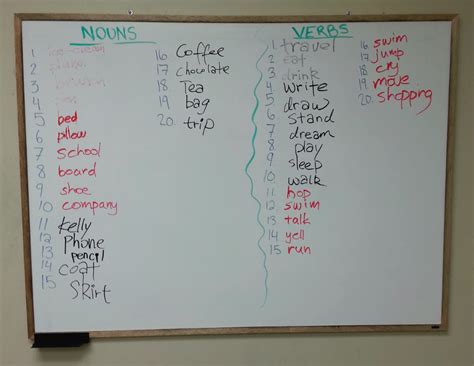 NOUNS
1
2
3
4 pen
5 bed
6 pillow
7 School
8 board
9 shoe
10 company
11 Kelly
12 Phone
13 pencil
14 coat
15 SKirt
16 Coffee
17 chocolate
18 Tea
19 bag
20. trip
VERBS
1 travel
2 eat
3 drink
4 write
5 draw
6 stand
7 dream
8 play
9 sleep
10 walk
11 hop
12 swim
13 talk
14 yell
15 run
16 swim
17 jump
18 cry
19 move
20. shopping